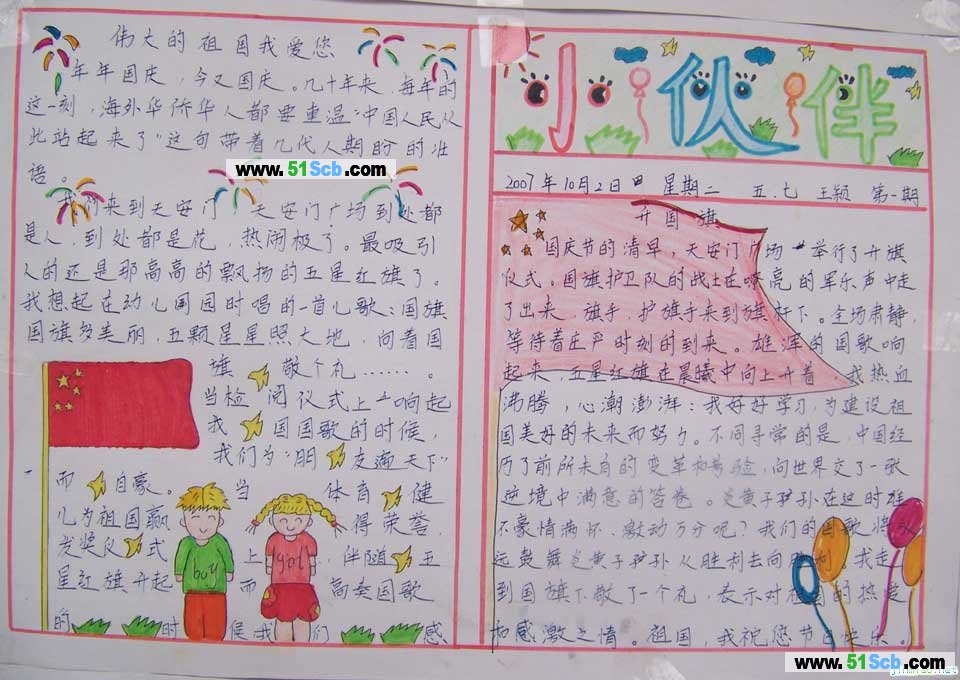 伟大的祖国我爱您
年年国庆，今又国庆。几十年来，每年的
这一刻，海外华侨华人都要重温“中国人民从
此站起来了”这句带着几代人期盼的壮
语。
我们来到天安门，天安门广场到处都
是人，到处都是花，热闹极了。最吸引
人的还是那高高的飘扬的五星红旗了。
我想起在幼儿园时唱的一首儿歌：国旗
国旗多美丽，五颗星星照大地，向着国
旗敬个礼……。
当检阅仪式上响起
我国国歌的时候，
我们为“朋友遍天下”
而自豪。当体育健
儿为祖国赢得荣誉，
发奖仪式上，伴随五
星红旗升起而高奏国歌
的时候我们感
小伙伴
2007年10月2日 星期二 五.七 王颖 第一期
升国旗
国庆节的清早，天安门广场举行了升旗
仪式。国旗护卫队的战士在嘹亮的军乐声中走
了出来，旗手，护旗手来到旗杆下。全场肃静，
等待着庄严时刻的到来。雄浑的国歌响
起来，五星红旗在晨曦中向上升着，我热血
沸腾，心潮澎湃：我好好学习，为建设祖
国美好的未来而努力。不同寻常的是，中国经
历了前所未有的变革和考验，向世界交了一张
逆境中满意的答卷。炎黄子孙在这时雄
不豪情满怀、激动万分呢？我们的国歌将永
远鼓舞炎黄子孙从胜利去向胜利，我走
到国旗下敬了一个礼，表示对祖国的热爱
和感激之情。祖国，我祝您节日快乐。
boy
girl
www.51Scb.com
www.51Scb.com